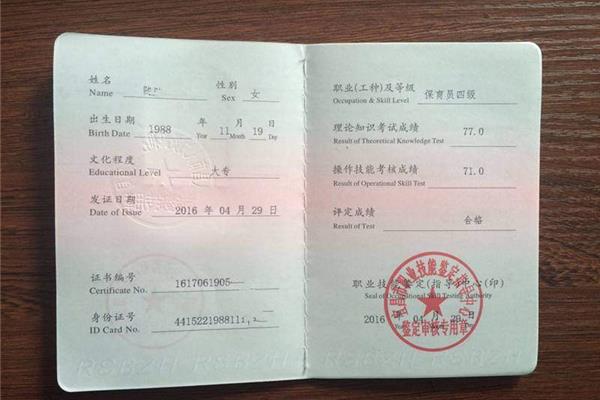 姓名 性别
Name Sex 女
出生日期 年 月 日
Birth Date 1988 Year 11 Month 19 Day
文化程度
Educational Level 大专
发证日期
Date of Issue 2016 年 04 月 29 日
证书编号
Certificate No. 1617061905
身份证号
ID Card No. 441522198811
职业(工种)及等级 保育员四级
Occupation & Skill Level
理论知识考试成绩 77.0
Result of Theoretical Knowledge Test
操作技能考核成绩 71.0
Result of Operational Skill Test
评定成绩 合格
Result of Test
职业技能鉴定(指导)中心(印)
Seal of Occupational Skill Testing Authority
2016 年 04 月 29 日
Year Day
鉴定审核专用章